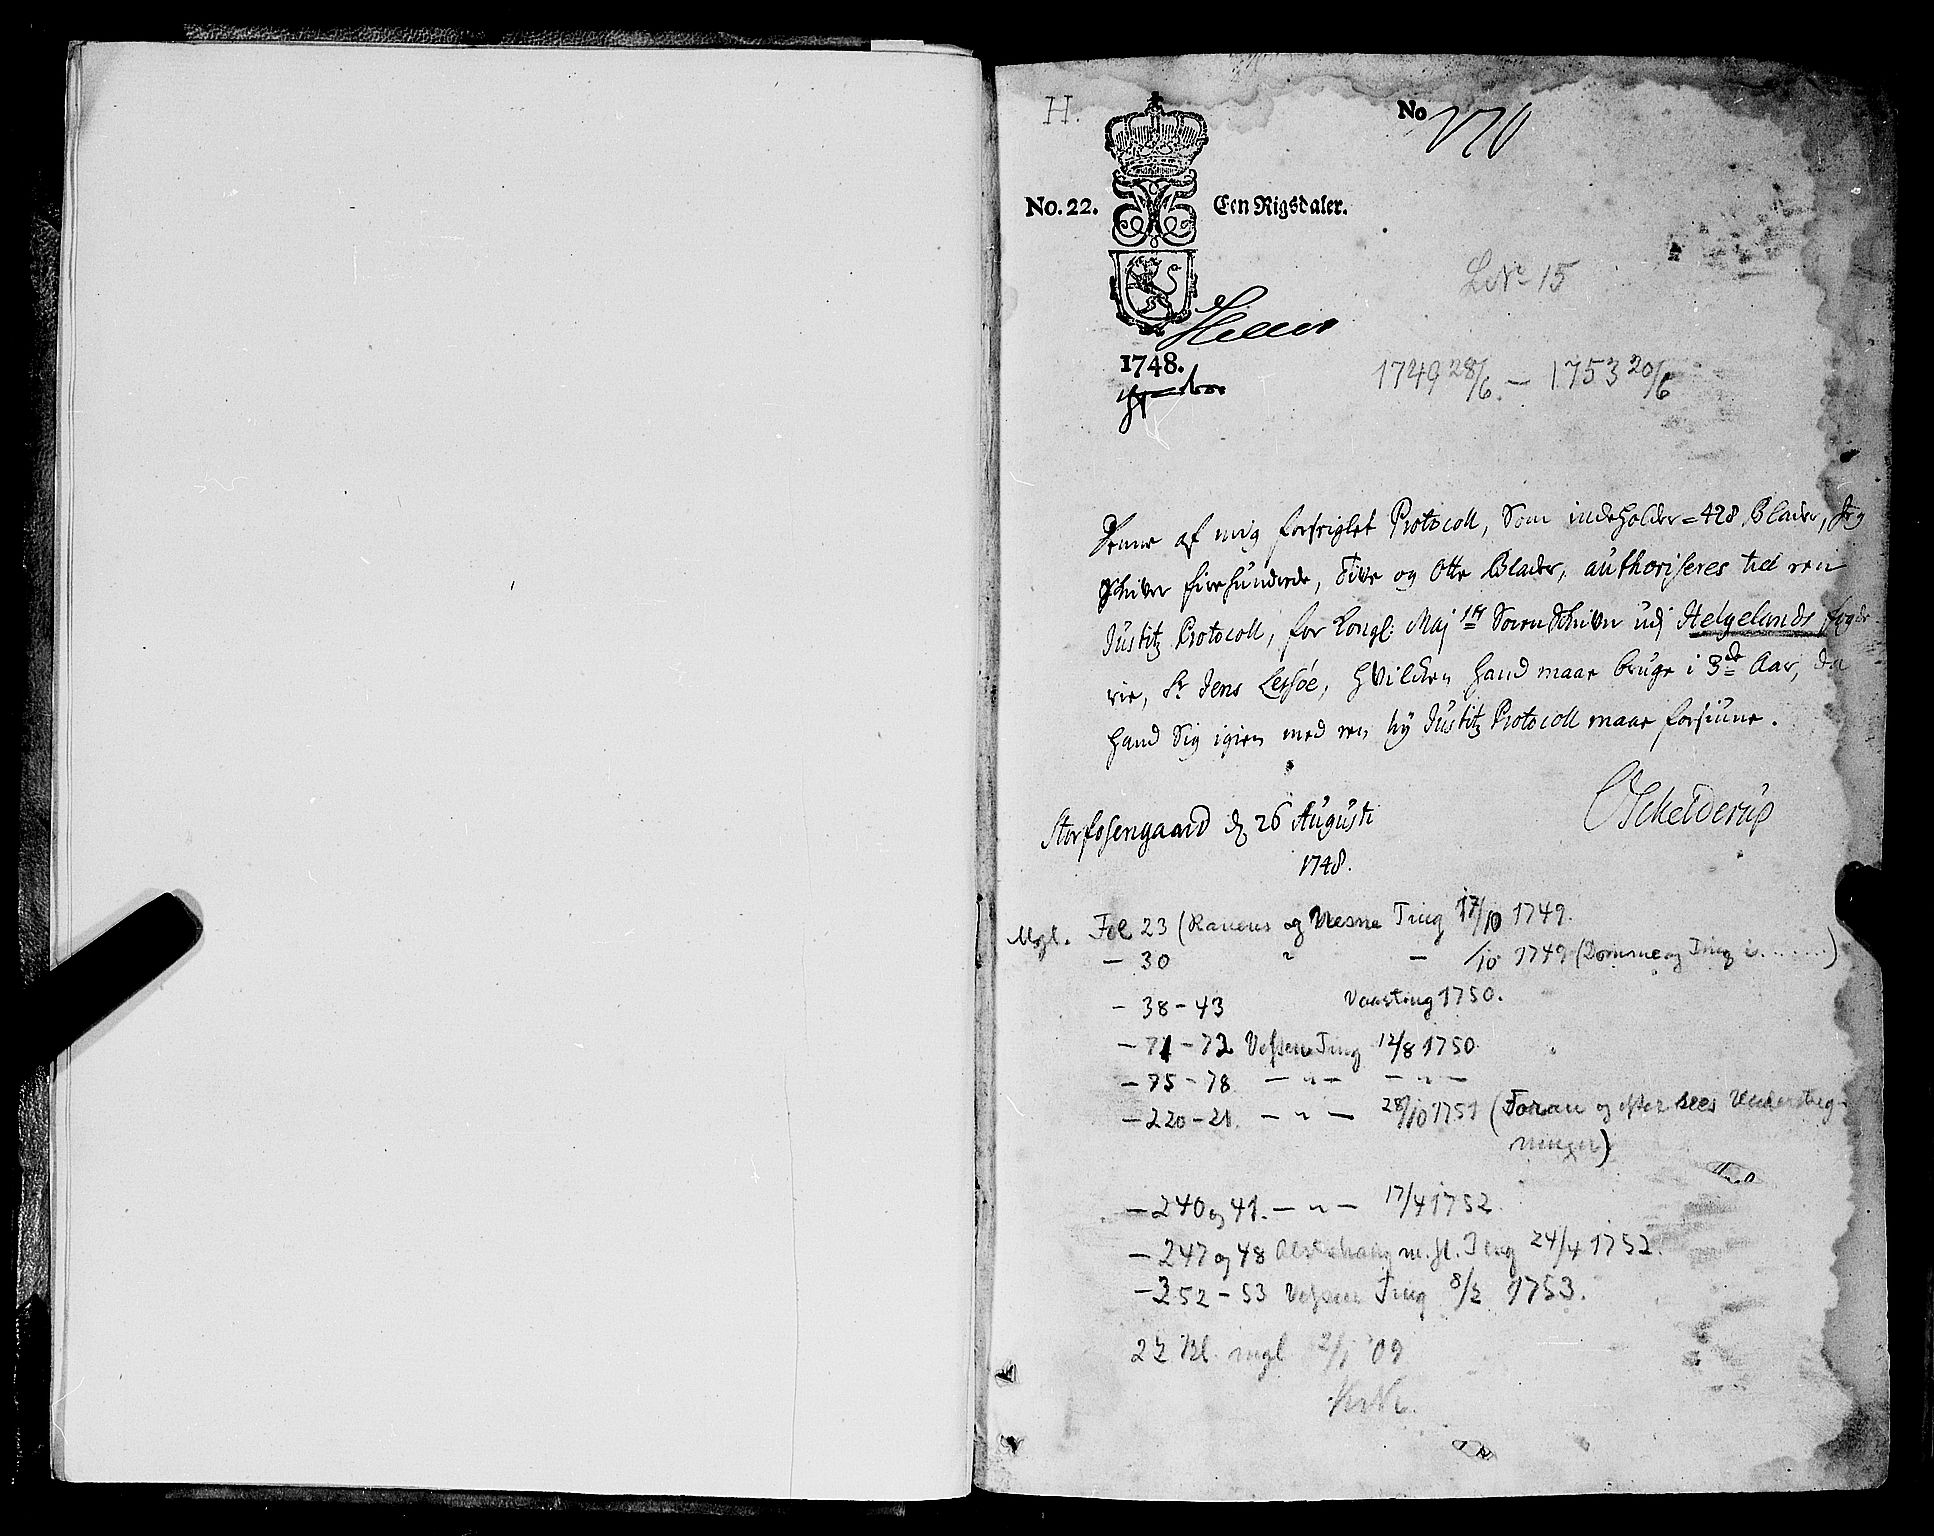 H.
No 170
No. 22. Een Rigsdaler.
L.Nr 15
1748.
1749 28/6. — 1753 20/6
Denne af mig forseiglet Protocoll, Som indeholder = 428 Blader, Jeg
schriver fire hundrede, Tive og Otte Blader, authoriseres til een
Justitz Protocoll, for Kongl: Maj sts SorenSchriver udj Helgelands fogde-
rie, Sr Jens Lessøe, hvilchen hand maae bruge i 3de Aar, da
hand Sig igien med een ny Justitz Protocoll maae forsiune.
OSchelderup
Storfosengaard d. 26 Augusti
1748.
Mgl. Fol 23 (Ranens og Nesne Ting 17/10 1749.
— 30 " — /10 1749 (Domme og Ting i ........)
— 38 - 43 Vaarting 1750.
— 71 - 72 Vefsen Ting 12/8 1750
— 75 - 78 — " — — " —
— 220 - 21. — " — 28/10 1751 (Foran og efter sees Understreg-
ninger)
— 240 og 41. — " — 17/4 1752.
— 247 og 48 Alstahaug m.fl. Ting 24/4 1752.
— 252 - 53 Vefsen Ting 8/2 1753.
22 Bl. mgl 2/1 '09